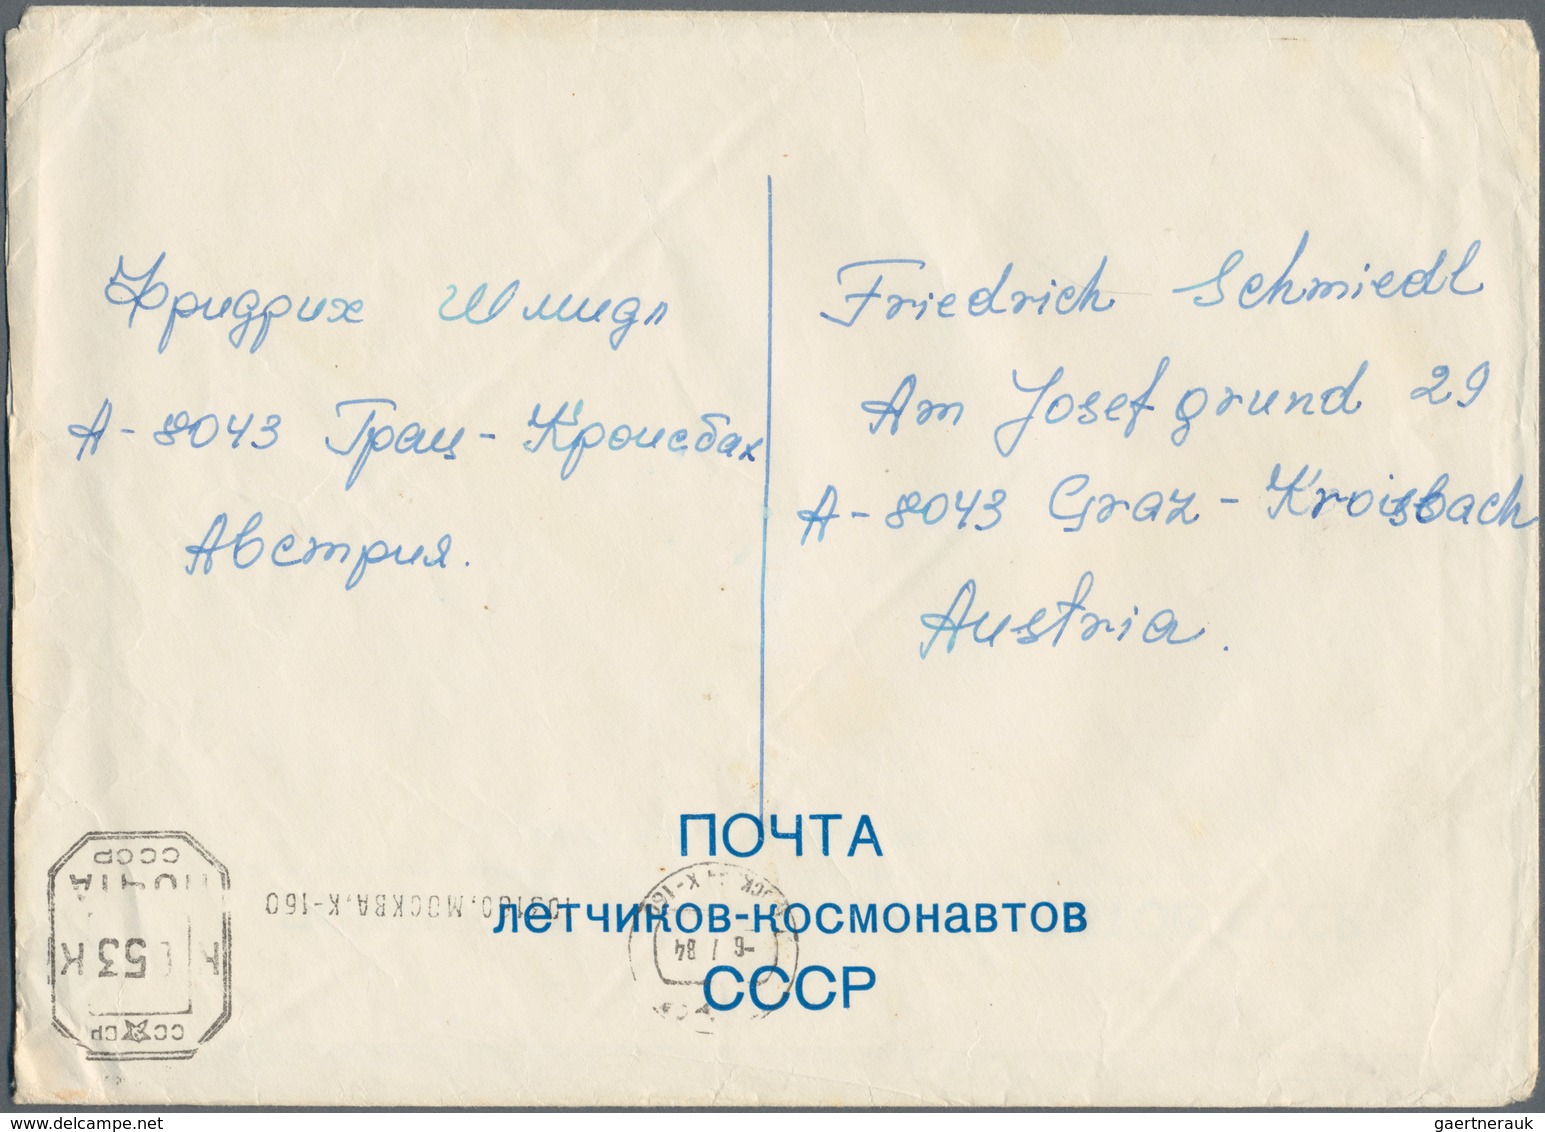 Фридрих Шмидл
А-8043 Грац-Кроисбах
Австрия.
Friedrich Schmiedl
Am Josefgrund 29
A-8043 Graz-Kroisbach
Austria.
ПОЧТА
летчиков-космонавтов
СССР
ПОЧТА
СССР
53 К
СССР
103160, МОСКВА, К-160
К-160
-6 1 84
gaertnerauk